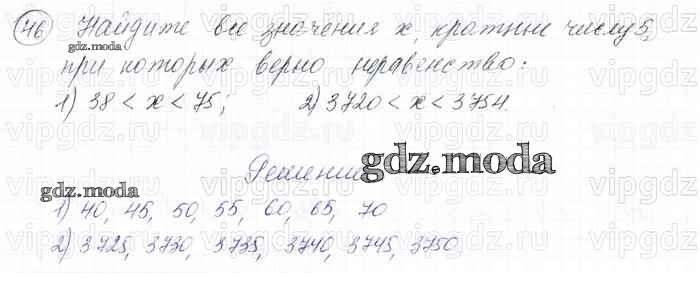 46 Найдите все значения x, кратные числу 5,
при которых верно неравенство:
1) 38 < x < 75; 2) 3720 < x < 3754.
Решение
1) 40, 45, 50, 55, 60, 65, 70
2) 3725, 3730, 3735, 3740, 3745, 3750
gdz.moda
gdz.moda
gdz.moda
vipgdz.ru